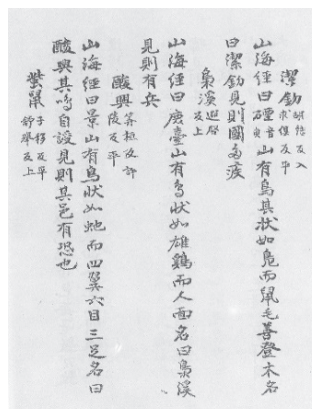 潔鉤 胡結反入 求俱反平
山海經曰山有鳥其狀如鳧而鼠毛善登木名
曰潔鉤見則國多疫
梟溪 反上
山海經曰鹿臺山有鳥狀如雄鷄而人面名曰梟溪
見則有兵
酸與 反平
山海經曰景山有鳥狀如虵而四翼六目三足名曰
酸與其鳴自設見則其邑有恐也
鼠 子移反平 舒舉反上